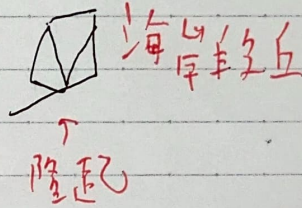 海岸段丘
隆起